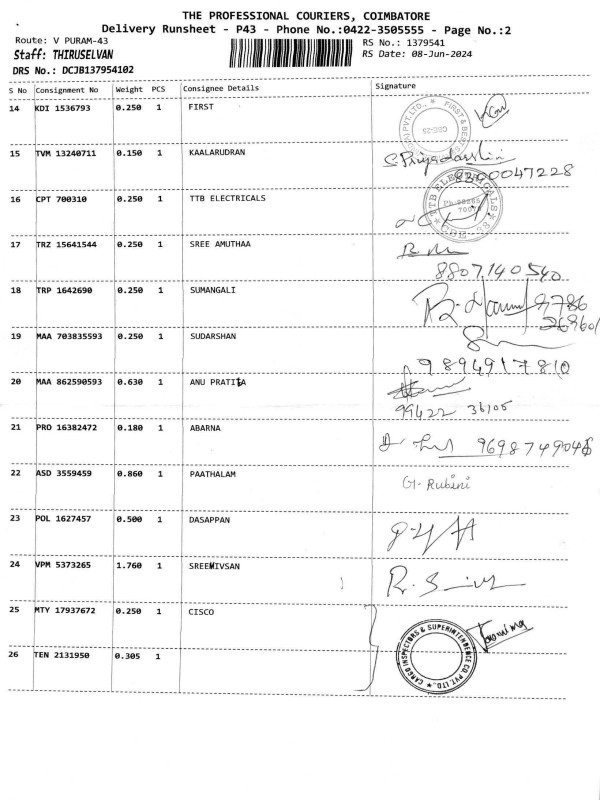 THE PROFESSIONAL COURIERS, COIMBATORE
Delivery Runsheet - P43 - Phone No.:0422-3505555 - Page No.:2
Route: V PURAM-43
RS No.: 1379541
Staff: THIRUSELVAN
RS Date: 08-Jun-2024
DRS No.: DCJB137954102
S No Consignment No Weight PCS Consignee Details Signature
14 KDI 1536793 0.250 1 FIRST
15 TVM 13240711 0.150 1 KAALARUDRAN
S. Priyadarshini
8300047228
16 CPT 700310 0.250 1 TTB ELECTRICALS
TTB ELECTRICALS
17 TRZ 15641544 0.250 1 SREE AMUTHAA
8807140540
18 TRP 1642690 0.250 1 SUMANGALI
9786
19 MAA 703835593 0.250 1 SUDARSHAN
9894917810
20 MAA 862590593 0.630 1 ANU PRATITA
99422 36105
21 PRO 16382472 0.180 1 ABARNA
22 ASD 3559459 0.860 1 PAATHALAM G. Rubini
23 POL 1627457 0.500 1 DASAPPAN
24 VPM 5373265 1.760 1 SREENIVSAN
25 MTY 17937672 0.250 1 CISCO
CARGO INSPECTORS & SUPERINTENDENCE CO. PVT. LTD.
26 TEN 2131950 0.305 1